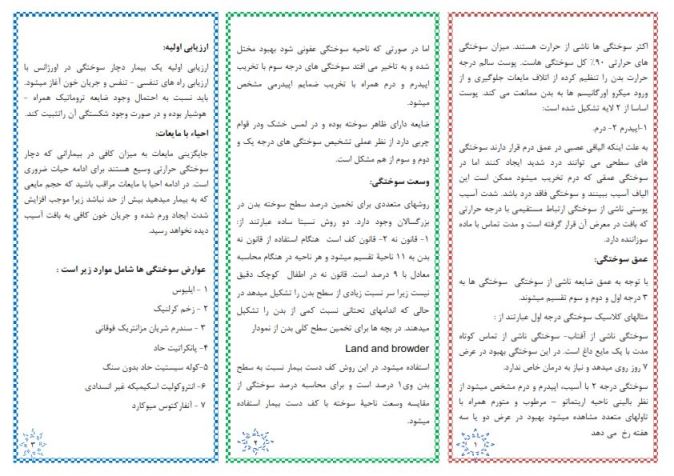 اکثر سوختگی ها ناشی از حرارت هستند. میزان سوختگی
های حرارتی ۹۰٪ کل سوختگی هاست. پوست سالم درجه
حرارت بدن را تنظیم کرده از اتلاف مایعات جلوگیری و از
ورود میکرو اورگانیسم ها به بدن ممانعت می کند. پوست
اساسا از ۲ لایه تشکیل شده است:
۱-اپیدرم ۲- درم.
به علت اینکه الیافی عصبی در عمق درم قرار دارند سوختگی
های سطحی می توانند درد شدید ایجاد کنند اما در
سوختگی عمقی که درم تخریب میشود ممکن است این
الیاف آسیب ببینند و سوختگی فاقد درد باشد. شدت آسیب
پوستی ناشی از سوختگی ارتباط مستقیمی با درجه حرارتی
که بافت در معرض آن قرار گرفته است و مدت تماس با ماده
سوزاننده دارد.
عمق سوختگی:
با توجه به عمق ضایعه ناشی از سوختگی سوختگی ها به
۳ درجه اول و دوم و سوم تقسیم میشوند.
مثالهای کلاسیک سوختگی درجه اول عبارتند از :
سوختگی ناشی از آفتاب- سوختگی ناشی از تماس کوتاه
مدت با یک مایع داغ است. در این سوختگی بهبود در عرض
۷ روز روی میدهد و نیاز به درمان خاص ندارد.
سوختگی درجه ۲ با آسیب، اپیدرم و درم مشخص میشود از
نظر بالینی ناحیه اریتماتو - مرطوب و متورم همراه با
تاولهای متعدد مشاهده میشود بهبود در عرض دو یا سه
هفته رخ می دهد
۱
اما در صورتی که ناحیه سوختگی عفونی شود بهبود مختل
شده و به تاخیر می افتد سوختگی های درجه سوم با تخریب
اپیدرم و درم همراه با تخریب ضمایم اپیدرمی مشخص
میشود.
ضایعه دارای ظاهر سوخته بوده و در لمس خشک ودر قوام
چربی دارد از نظر عملی تشخیص سوختگی های درجه یک و
دوم و سوم از هم مشکل است.
وسعت سوختگی:
روشهای متعددی برای تخمین درصد سطح سوخته بدن در
بزرگسالان وجود دارد. دو روش نسبتا ساده عبارتند از:
۱- قانون نه ۲- قانون کف است هنگام استفاده از قانون نه
بدن به ۱۱ ناحیهٔ تقسیم میشود و هر ناحیه در هنگام محاسبه
معادل با ۹ درصد است. قانون نه در اطفال کوچک دقیق
نیست زیرا سر نسبت زیادی از سطح بدن را تشکیل میدهد در
حالی که اندامهای تحتانی نسبت کمی از بدن را تشکیل
میدهند. در بچه ها برای تخمین سطح کلی بدن از نمودار
Land and browder
استفاده میشود. در این روش کف دست بیمار نسبت به سطح
بدن وی۱ درصد است و برای محاسبه درصد سوختگی از
مقایسه وسعت ناحیهٔ سوخته با کف دست بیمار استفاده
میشود.
۲
ارزیابی اولیه:
ارزیابی اولیه یک بیمار دچار سوختگی در اورژانس با
ارزیابی راه های تنفسی - تنفس و جریان خون آغاز میشود.
باید نسبت به احتمال وجود ضایعه تروماتیک همراه -
هوشیار بوده و در صورت وجود شکستگی آن راتثبیت کند.
احیاء با مایعات:
جایگزینی مایعات به میزان کافی در بیمارانی که دچار
سوختگی حرارتی وسیع هستند برای ادامه حیات ضروری
است. در ادامه احیا با مایعات مراقب باشید که حجم مایعی
که به بیمار میدهید بیش از حد نباشد زیرا موجب افزایش
شدت ایجاد ورم شده و جریان خون کافی به بافت آسیب
دیده نخواهد رسید.
عوارض سوختگی ها شامل موارد زیر است :
۱ - ایلیوس
۲ - زخم کرلنیک
۳ - سندرم شریان مزانتریک فوقانی
۴- پانکراتیت حاد
۵-کوله سیستیت حاد بدون سنگ
۶- انتروکولیت اسکیمیکه غیر انسدادی
۷ - آنفارکتوس میوکارد
۳